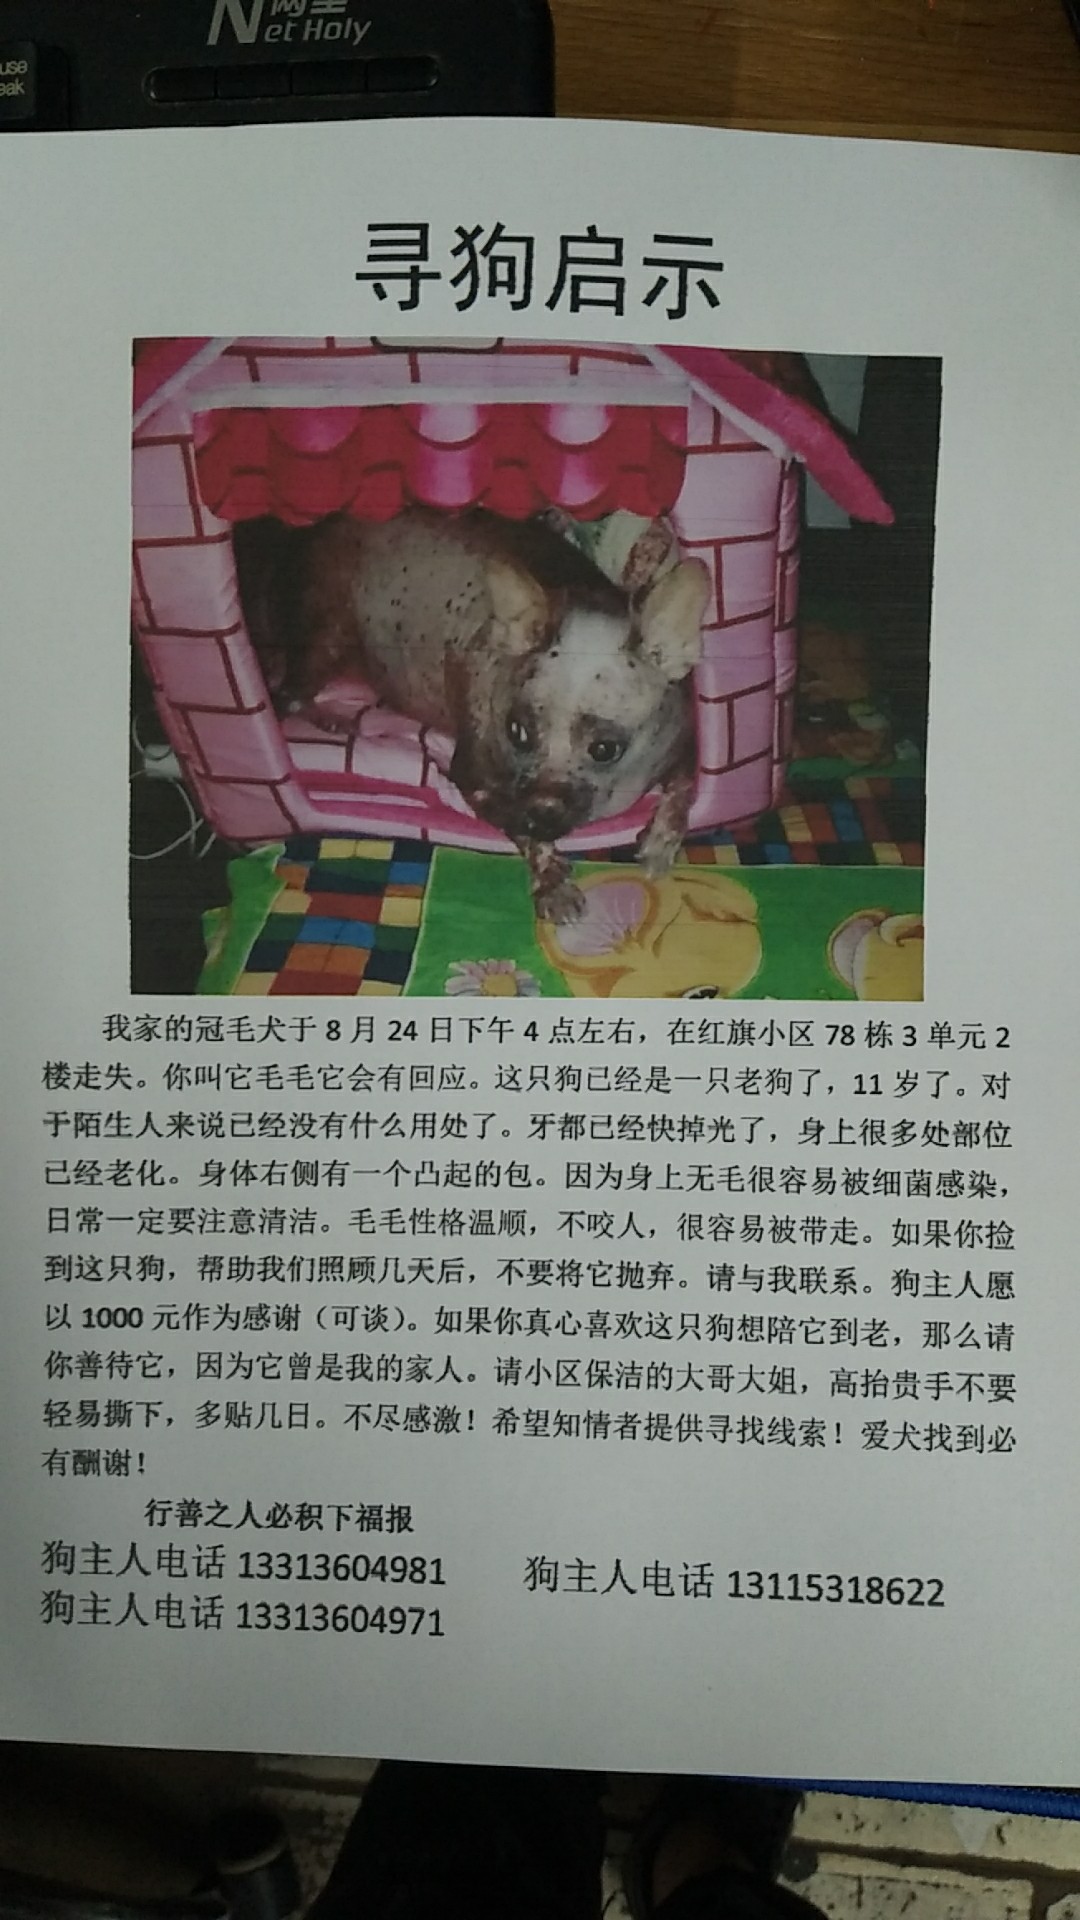 Net Holy
use
eak
寻狗启示
我家的冠毛犬于 8 月 24 日下午 4 点左右，在红旗小区 78 栋 3 单元 2
楼走失。你叫它毛毛它会有回应。这只狗已经是一只老狗了，11 岁了。对
于陌生人来说已经没有什么用处了。牙都已经快掉光了，身上很多处部位
已经老化。身体右侧有一个凸起的包。因为身上无毛很容易被细菌感染，
日常一定要注意清洁。毛毛性格温顺，不咬人，很容易被带走。如果你捡
到这只狗，帮助我们照顾几天后，不要将它抛弃。请与我联系。狗主人愿
以 1000 元作为感谢（可谈）。如果你真心喜欢这只狗想陪它到老，那么请
你善待它，因为它曾是我的家人。请小区保洁的大哥大姐，高抬贵手不要
轻易撕下，多贴几日。不尽感激！希望知情者提供寻找线索！爱犬找到必
有酬谢！
行善之人必积下福报
狗主人电话 13313604981 狗主人电话 13115318622
狗主人电话 13313604971